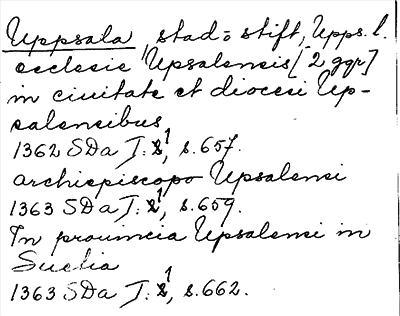 Uppsala, stad o stift, Upps. l.
ecclesie Upsalensis [2 ggr]
in ciuitate et diocesi Up-
salensibus
1362 SDa I: 1, s. 657.
archiepiscopo Upsalensi
1363 SDa I: 1, s. 659.
In prouincia Upsalensi in
Suecia
1363 SDa I: 1, s. 662.